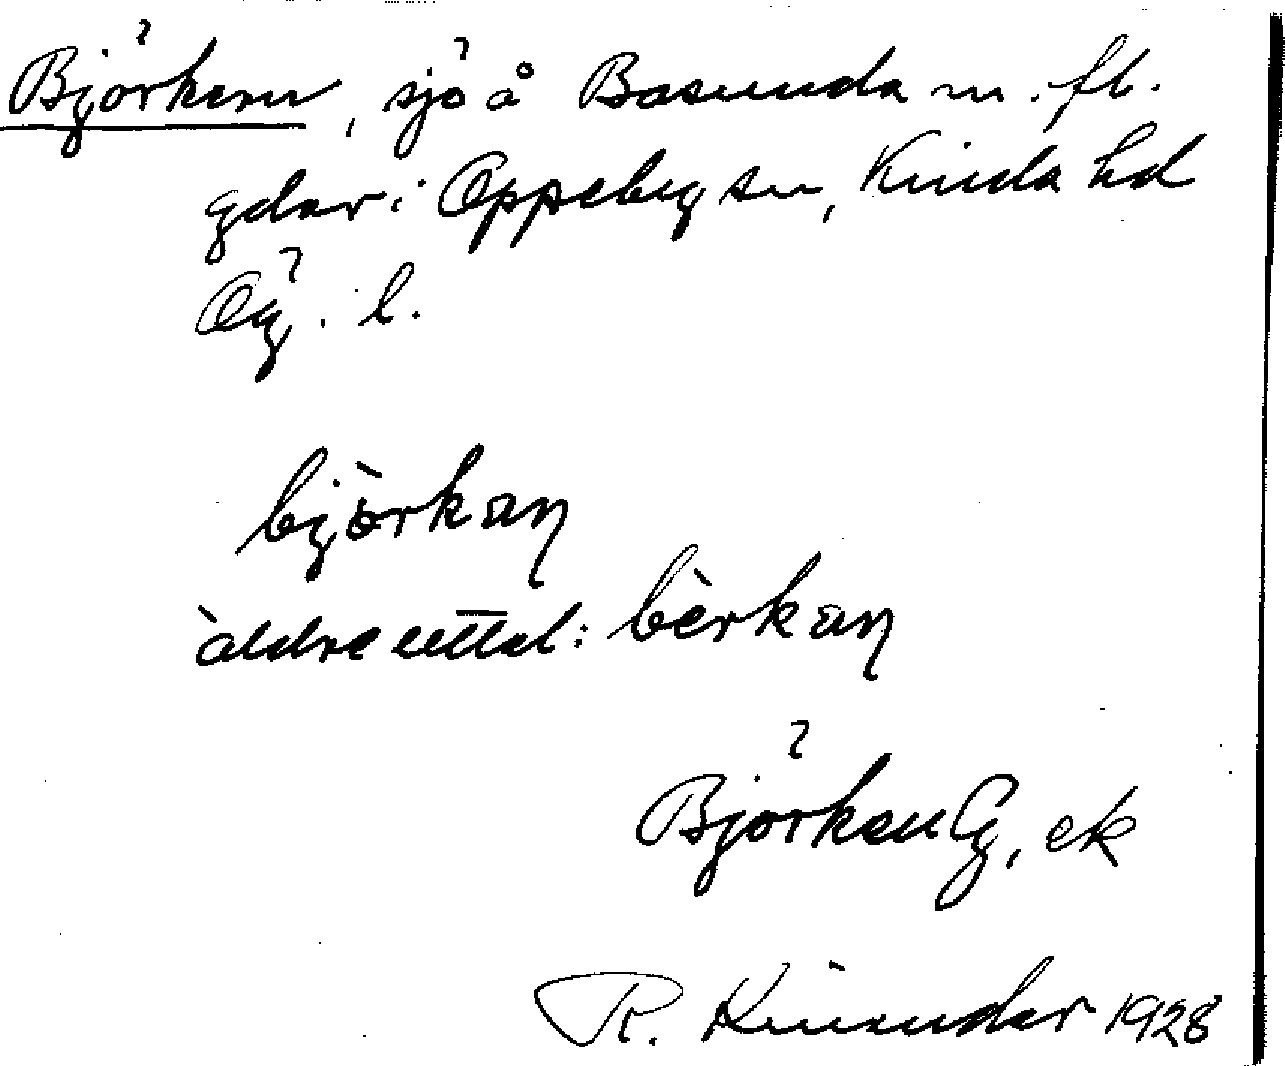 Björkern, sjö å Basunda m. fl.
gdar i Oppeby sn, Kinda hd
Ög. l.
björkaŋ
äldre uttal: bèrkaŋ
Björken G, ek
R. 1928